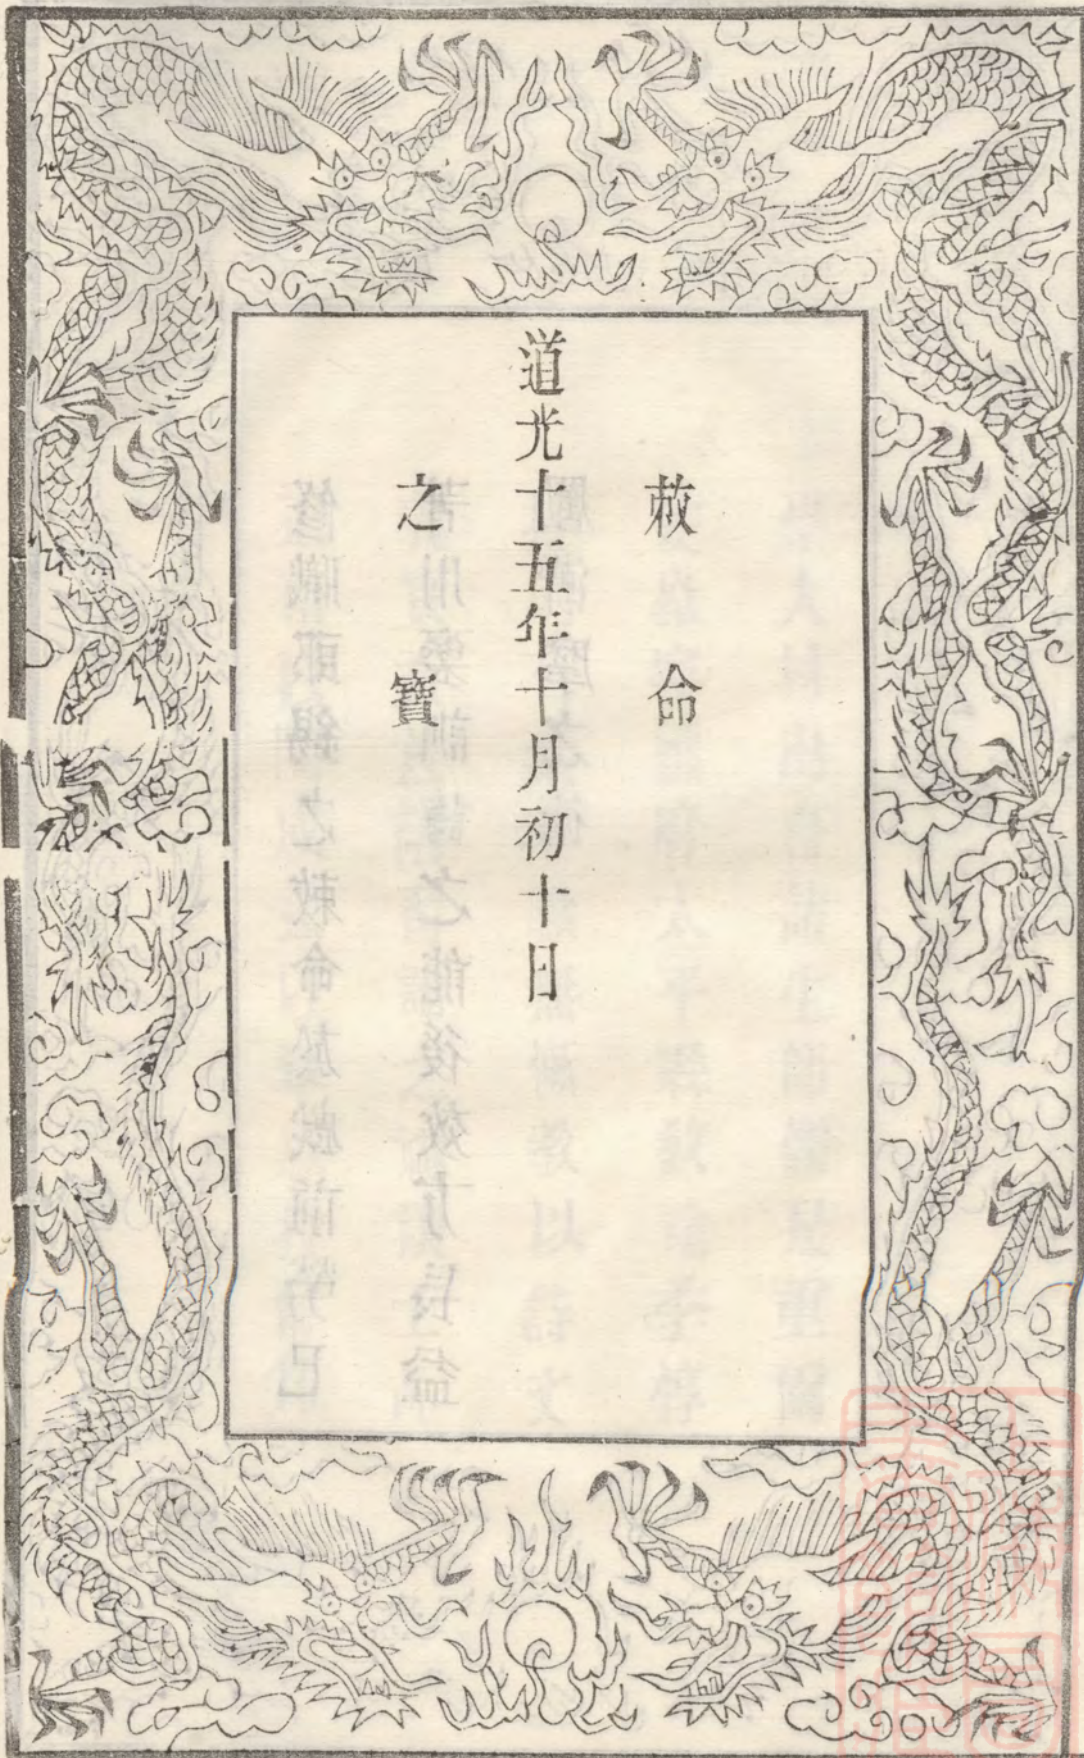 敕命
道光十五年十月初十日
之寶